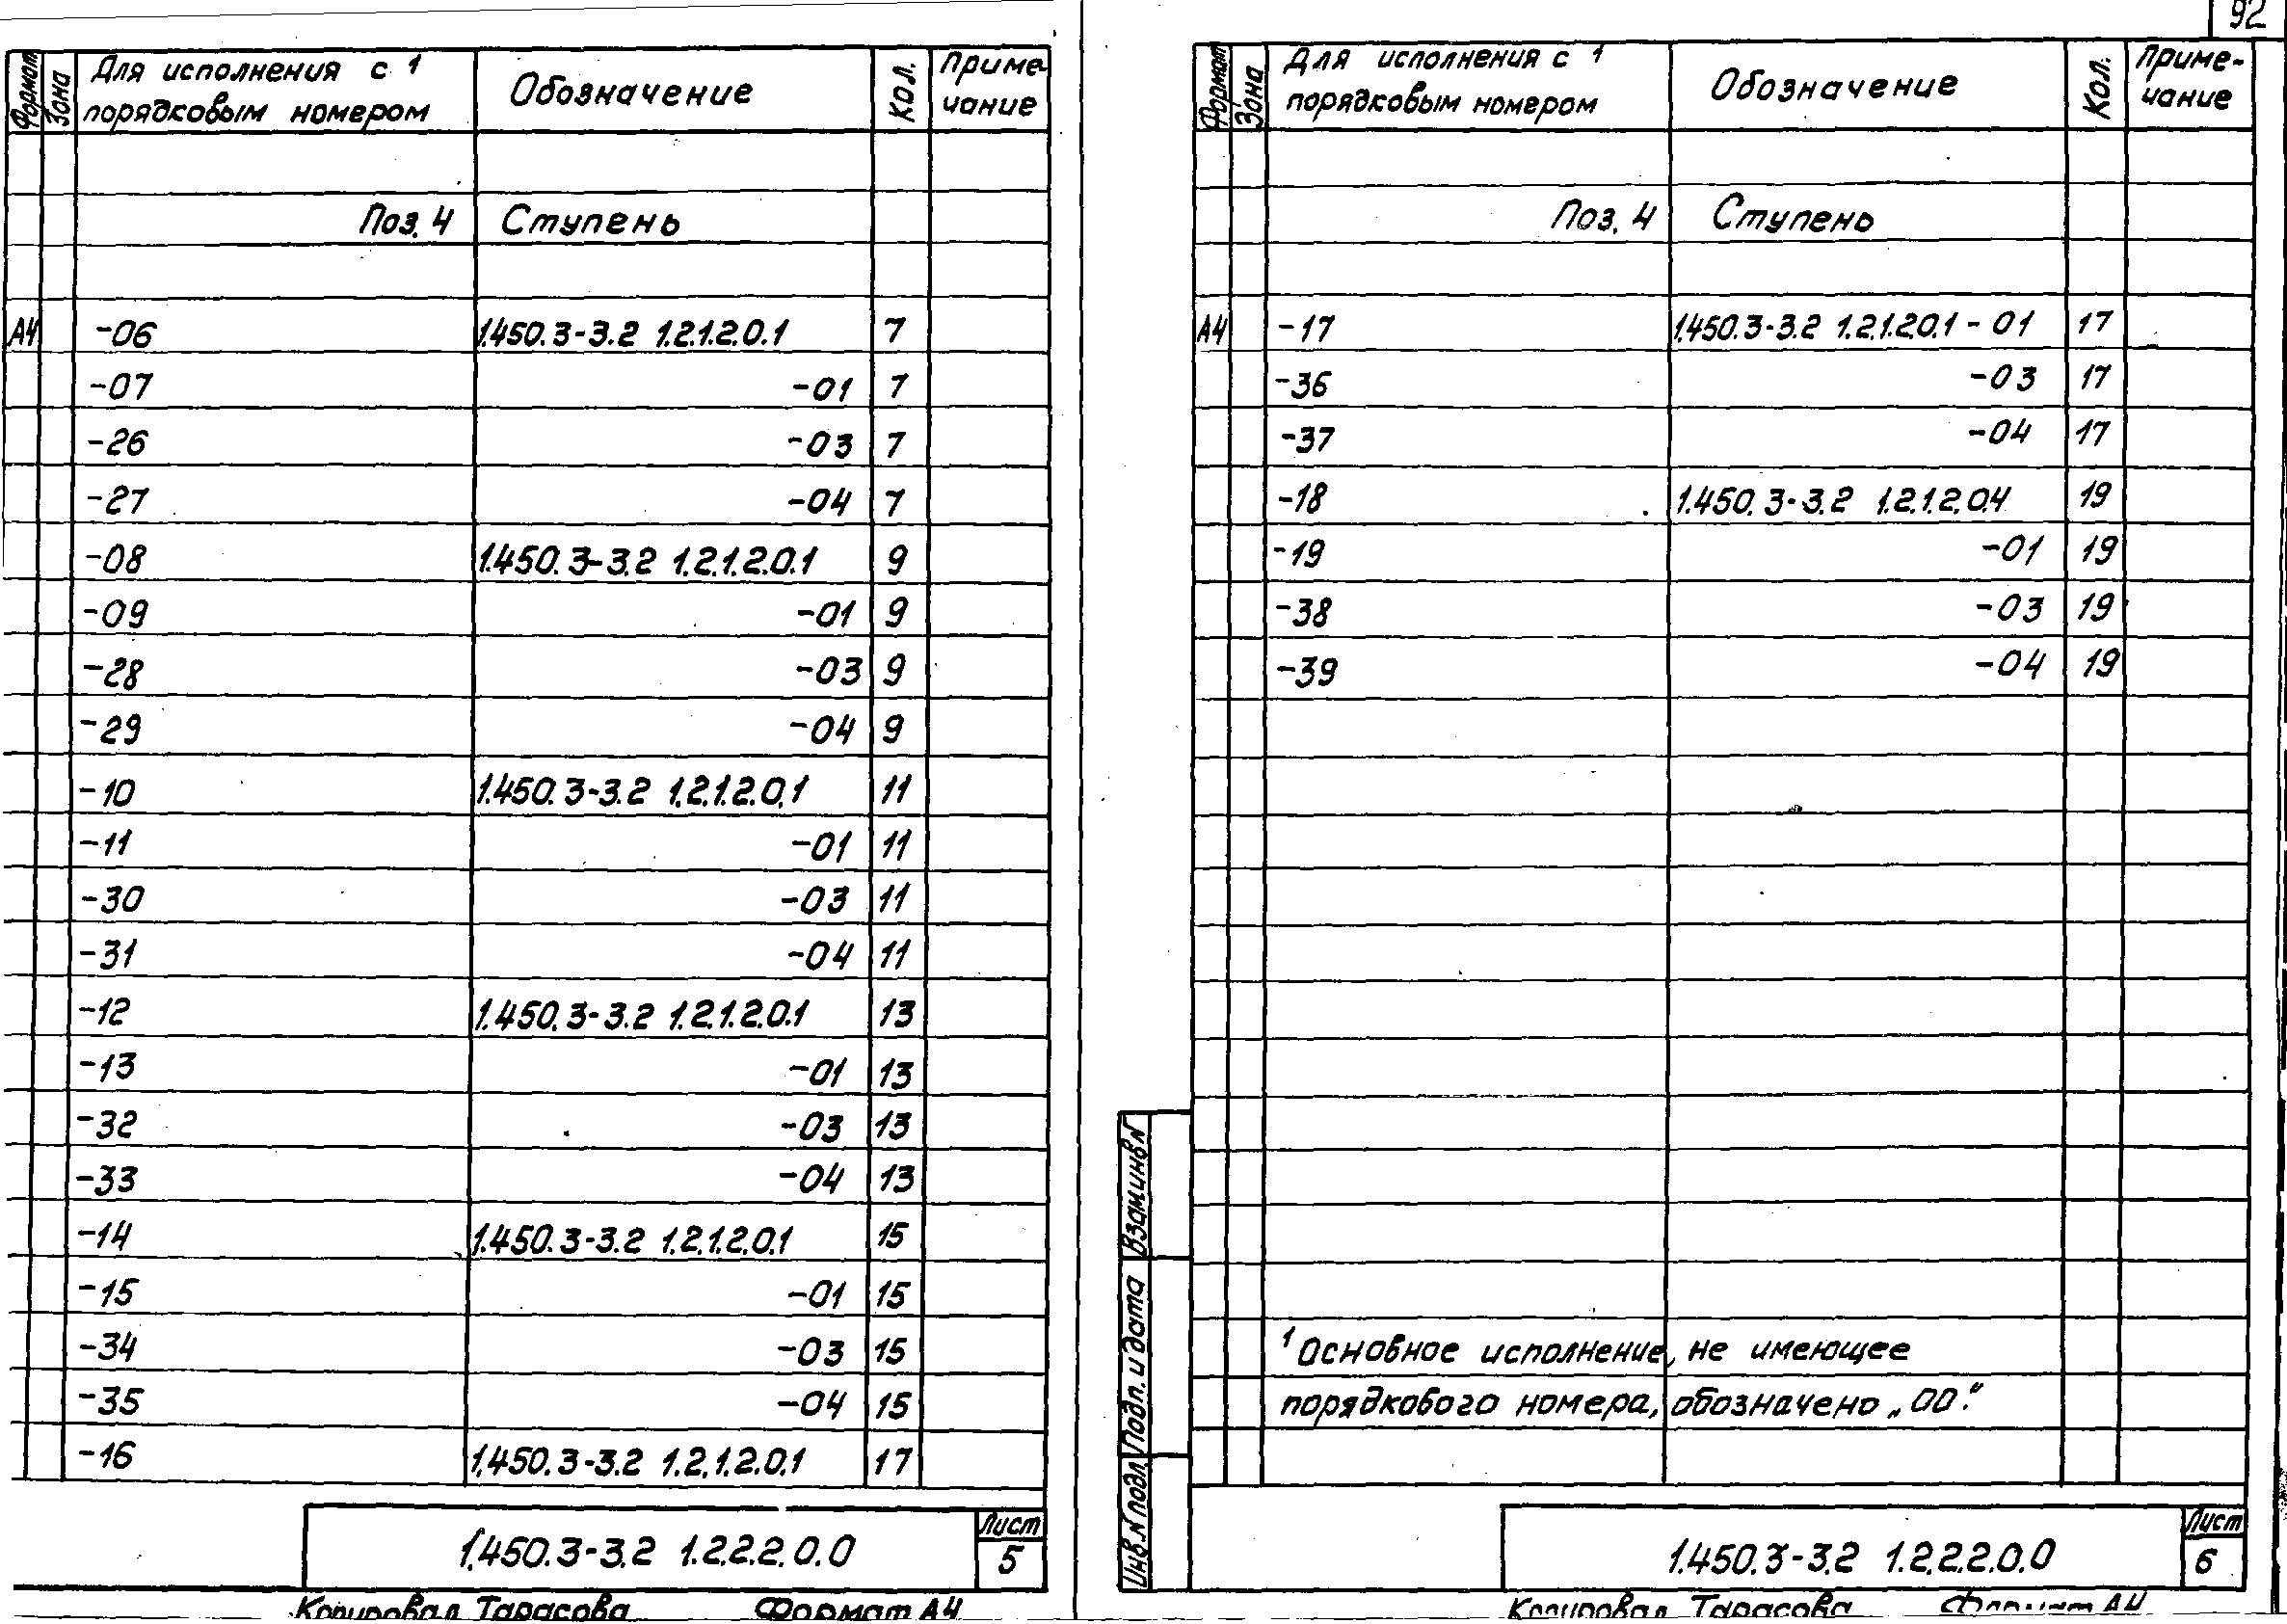 92
Формат Зона Для исполнения с 1 порядковым номером Обозначение Кол. Приме-чание
Поз. 4 Ступень
А4 -06 1.450.3-3.2 1.2.1.2.0.1 7
-07 -01 7
-26 -03 7
-27 -04 7
-08 1.450.3-3.2 1.2.1.2.0.1 9
-09 -01 9
-28 -03 9
-29 -04 9
-10 1.450.3-3.2 1.2.1.2.0.1 11
-11 -01 11
-30 -03 11
-31 -04 11
-12 1.450.3-3.2 1.2.1.2.0.1 13
-13 -01 13
-32 -03 13
-33 -04 13
-14 1.450.3-3.2 1.2.1.2.0.1 15
-15 -01 15
-34 -03 15
-35 -04 15
-16 1.450.3-3.2 1.2.1.2.0.1 17
1.450.3-3.2 1.2.2.2.0.0 Лист 5
Копировал Тарасова Формат А4
Формат Зона Для исполнения с 1 порядковым номером Обозначение Кол. Приме-чание
Поз. 4 Ступень
А4 -17 1.450.3-3.2 1.2.1.2.0.1-01 17
-36 -03 17
-37 -04 17
-18 1.450.3-3.2 1.2.1.2.0.4 19
-19 -01 19
-38 -03 19
-39 -04 19
1 Основное исполнение, не имеющее
порядкового номера, обозначено „00".
Взам.инв.N
Подп. и дата
Инв.N подл.
1.450.3-3.2 1.2.2.2.0.0 Лист 6
Копировал Тарасова Формат А4